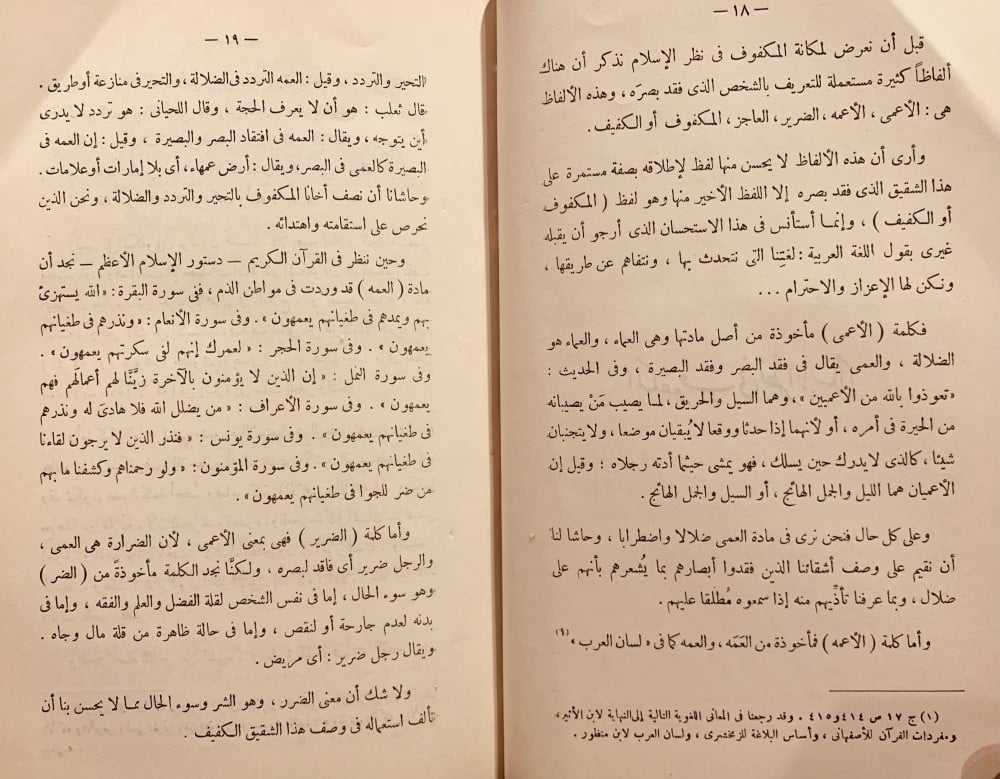 — ١٨ —
قبل أن نعرض لمكانة المكفوف فى نظر الإسلام نذكر أن هناك
ألفاظاً كثيرة مستعملة للتعريف بالشخص الذى فقد بصرَه ، وهذه الألفاظ
هى : الأعمى ، الأعمه ، الضرير ، العاجز ، المكفوف أو الكفيف .
وأرى أن هذه الألفاظ لا يحسن منها لفظ لإطلاقه بصفة مستمرة على
هذا الشقيق الذى فقد بصره إلا اللفظ الأخير منها وهو لفظ ( المكفوف
أو الكفيف ) ، وإنما أستأنس فى هذا الاستحسان الذى أرجو أن يقبله
غيرى بقول اللغة العربية : لغتِنا التى نتحدث بها ، ونتفاهم عن طريقها ،
ونكن لها الإعزاز والاحترام ...
فكلمة ( الأعمى ) مأخوذة من أصل مادتها وهى العماء ، والعماء هو
الضلالة ، والعمى يقال فى فقد البصر وفقد البصيرة ، وفى الحديث :
« تعوذوا بالله من الأعميين » ، وهما السيل والحريق ، لما يصيب مَنْ يصيبانه
من الحيرة فى أمره ، أو لأنهما إذا حدثا ووقعا لا يُبقيان موضعا ، ولا يتجنبان
شيئا ، كالذى لا يدرك حين يسلك ، فهو يمشى حيثما أدته رجلاه ؛ وقيل إن
الأعميان هما الليل والجمل الهائج ، أو السيل والجمل الهائج .
وعلى كل حال فنحن نرى فى مادة العمى ضلالا واضطرابا ، وحاشا لنا
أن نقيم على وصف أشقائنا الذين فقدوا أبصارهم بما يُشعرهم بأنهم على
ضلال ، وبما عرفنا تأذِّيهم منه إذا سمعوه مُطلقا عليهم .
وأما كلمة ( الأعمه ) فمأخوذة من العَمَه ، والعمه كما فى « لسان العرب » (١)
(١) ج ١٧ ص ٤١٤ و ٤١٥ . وقد رجعنا فى المعانى اللغوية التالية إلى النهاية لابن الأثير،
ومفردات القرآن للأصفهانى ، وأساس البلاغة للزمخشرى ، ولسان العرب لابن منظور .
— ١٩ —
التحير والتردد ، وقيل : العمه التردد فى الضلالة ، والتحير فى منازعة أو طريق .
قال ثعلب : هو أن لا يعرف الحجة ، وقال اللحيانى : هو تردد لا يدرى
أين يتوجه ، ويقال : العمه فى افتقاد البصر والبصيرة ، وقيل : إن العمه فى
البصيرة كالعمى فى البصر، ويقال : أرض عمهاء ، أى بلا إمارات أو علامات .
وحاشانا أن نصف أخانا المكفوف بالتحير والتردد والضلالة ، ونحن الذين
نحرص على استقامته واهتدائه .
وحين ننظر فى القرآن الكريم — دستور الإسلام الأعظم — نجد أن
مادة ( العمه ) قد وردت فى مواطن الذم ، ففى سورة البقرة : « الله يستهزئ
بهم ويمدهم فى طغيانهم يعمهون » . وفى سورة الأنعام : « ونذرهم فى طغيانهم
يعمهون » . وفى سورة الحجر : « لعمرك إنهم لفى سكرتهم يعمهون » .
وفى سورة النمل : « إن الذين لا يؤمنون بالآخرة زيَّنَّا لهم أعمالَهم فهم
يعمهون » . وفى سورة الأعراف : « من يضلل الله فلا هادىَ له ونذرهم
فى طغيانهم يعمهون » . وفى سورة يونس : « فنذر الذين لا يرجون لقاءنا
فى طغيانهم يعمهون » . وفى سورة المؤمنون : « ولو رحمناهم وكشفنا ما بهم
من ضر للجوا فى طغيانهم يعمهون » .
وأما كلمة ( الضرير ) فهى بمعنى الأعمى ، لأن الضرارة هى العمى ،
والرجل ضرير أى فاقد لبصره ، ولكنَّا نجد الكلمة مأخوذةً من ( الضر )
وهو سوء الحال ، إما فى نفس الشخص لقلة الفضل والعلم والفقه ، وإما فى
بدنه لعدم جارحة أو لنقص ، وإما فى حالة ظاهرة من قلة مال وجاه .
ويقال رجل ضرير : أى مريض .
ولا شك أن معنى الضرر ، وهو الشر وسوء الحال مما لا يحسن بنا أن
نألف استعماله فى وصف هذا الشقيق الكفيف .